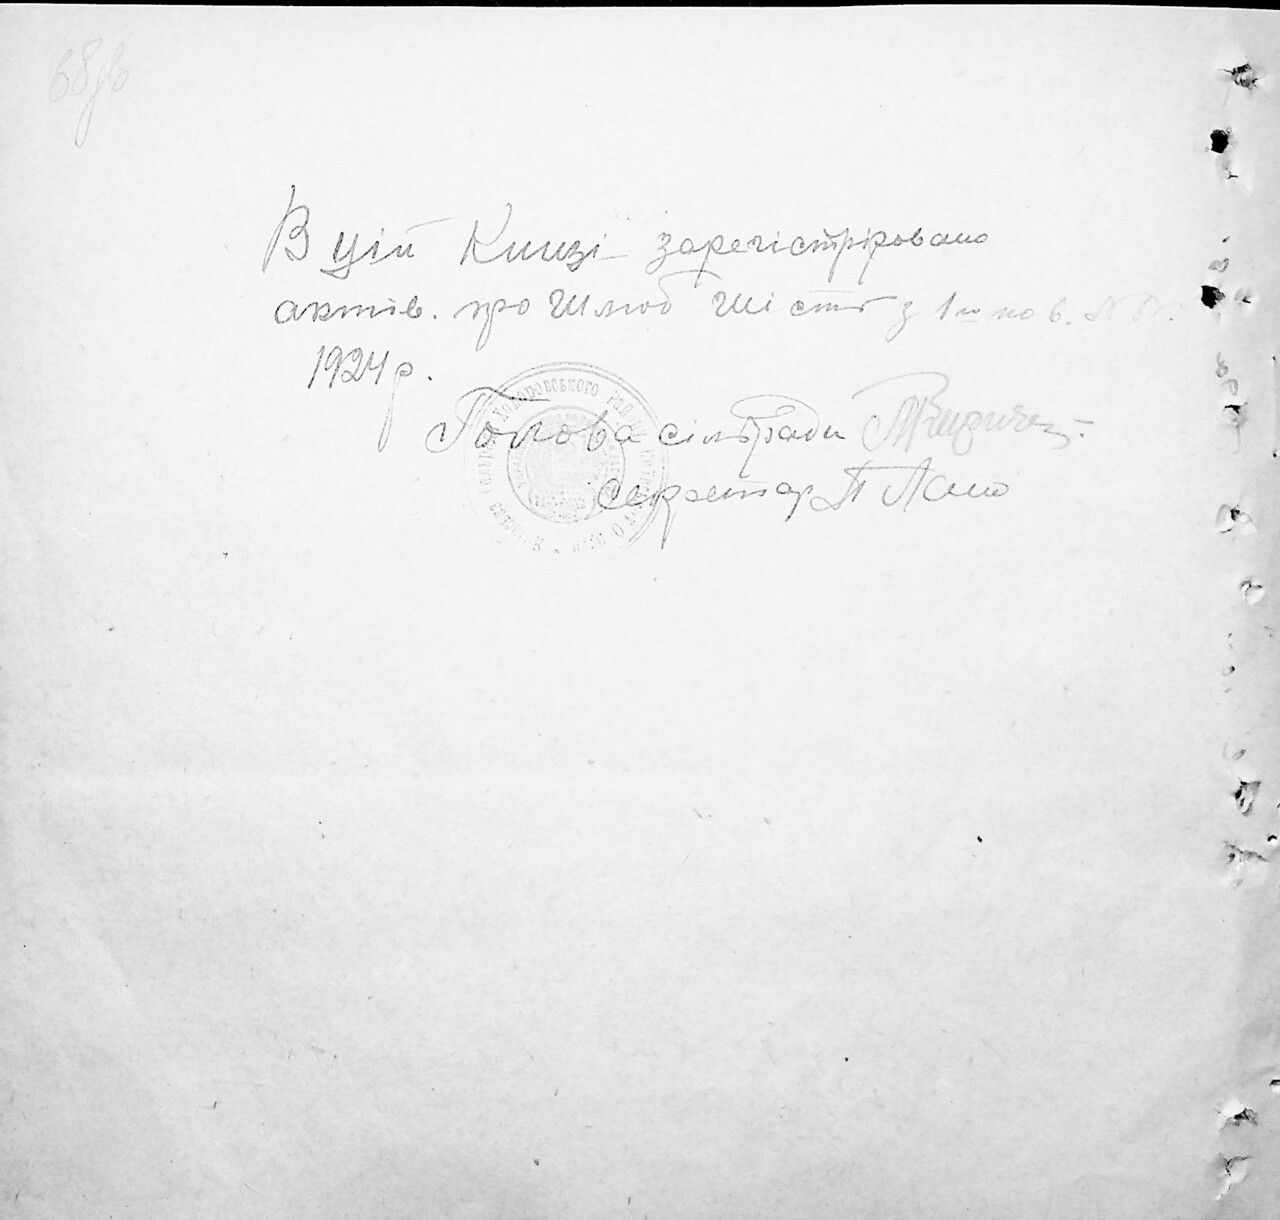 68
В цій Книзі зарегістріровано
актів. про Шлюб Шість з 1го по 6.
1924 р.
Голова сільради
секретар П
Ходоровського райо